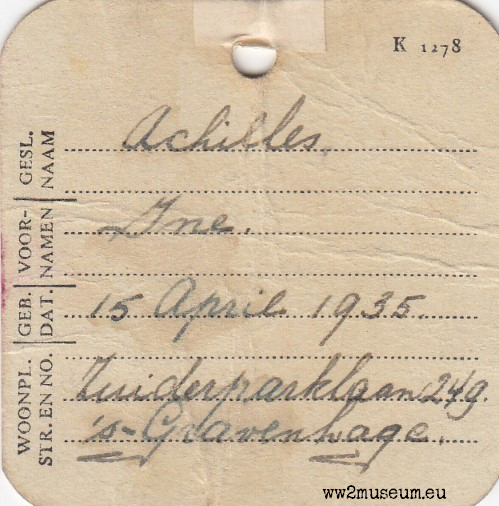 K 1278
GESL. NAAM
Achilles.
VOOR- NAMEN
Ine.
GEB. DAT.
15 April 1935.
WOONPL. STR. EN NO.
Zuiderparklaan 249.
's-Gravenhage.
ww2museum.eu